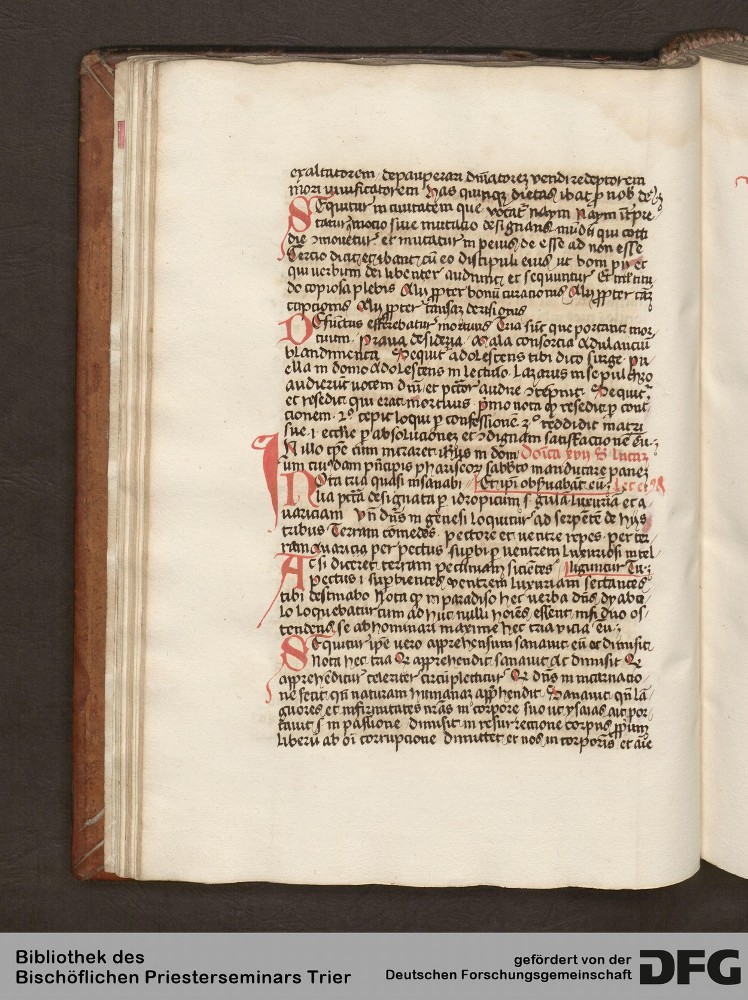 exaltatorem depauperari ditatorez vendi redeptorem
mori viuificatorem has quinqz dietas ibat p nob
Sequitur in ciuitatem que vocat naym Naym itpre
tatur motio siue mutatio designans mudu qui coti
die mouetur et mutatur in peius de esse ad non esse
Tercio dicit et ibant cu eo discipuli eius ut boni pii et
qui verbum dei libenter audiunt et sequuntur Et multitu
do copiosa plebis Alij ppter bonu curationis Alij ppter
Alij ppter causaz derisionis
Defunctus efferebatur mortuus Tria sut que portant mor
tuum praua desideria mala consorcia adulanciu
blandimenta Sequit adolescens tibi dico surge pu
ella in domo adolescens in lectulo Lazarus in sepulchro
audierut vocem dni et pctor audire Sequit
et resedit qui erat mortuus pmo nota q resedit p cont
cionem 2o cepit loqui p confessione 3o reddidit matri
sue i eccie p absolucionez et dignam satisfactione eu
In illo tpe cum intraret ihus in dom Donica xvii S lucaz
um cuiusdam principis phariseoz sabbto manducare panez
Nota tria quasi insanabi Et ipi obseruabat eu
lia pcta designata p idropicum s gula luxuria et a
uariciam Vn dns in genesi loquitur ad serpente de hijs
tribus Terram comedes pectore et ventre repes per ter
ram auaricia per pectus supbi p ventrem luxuriosi intel
Ac si diceret terram pecuniam sicientes liguntur Tu
pectus i superbientes ventrem luxuriam sectantes
tibi destinabo Nota q in paradiso hec verba dns dyabo
lo loquebatur cum ad huc nulli hoies essent nisi duo os
tendens se abhominari maxime hec tria vicia eu
Sequitur ipe vero apprehensum sanauit eu et dimisit
Nota hec tria Qz apprehendit sanauit Ac dimisit Qz
apprehenditur celeriter circuplectitur Qz dns in incarnacio
ne fecit qn naturam humanaz apphendit Sanauit qn la
guores et infirmitates nras in corpore suo ut ysaias ait por
tauit s in passione dimisit in resurrectione corpus ppium
liberu ab oi corrupcione dimittet et nos in corporis et aie
Bibliothek des
Bischöflichen Priesterseminars Trier
gefördert von der
Deutschen Forschungsgemeinschaft
DFG